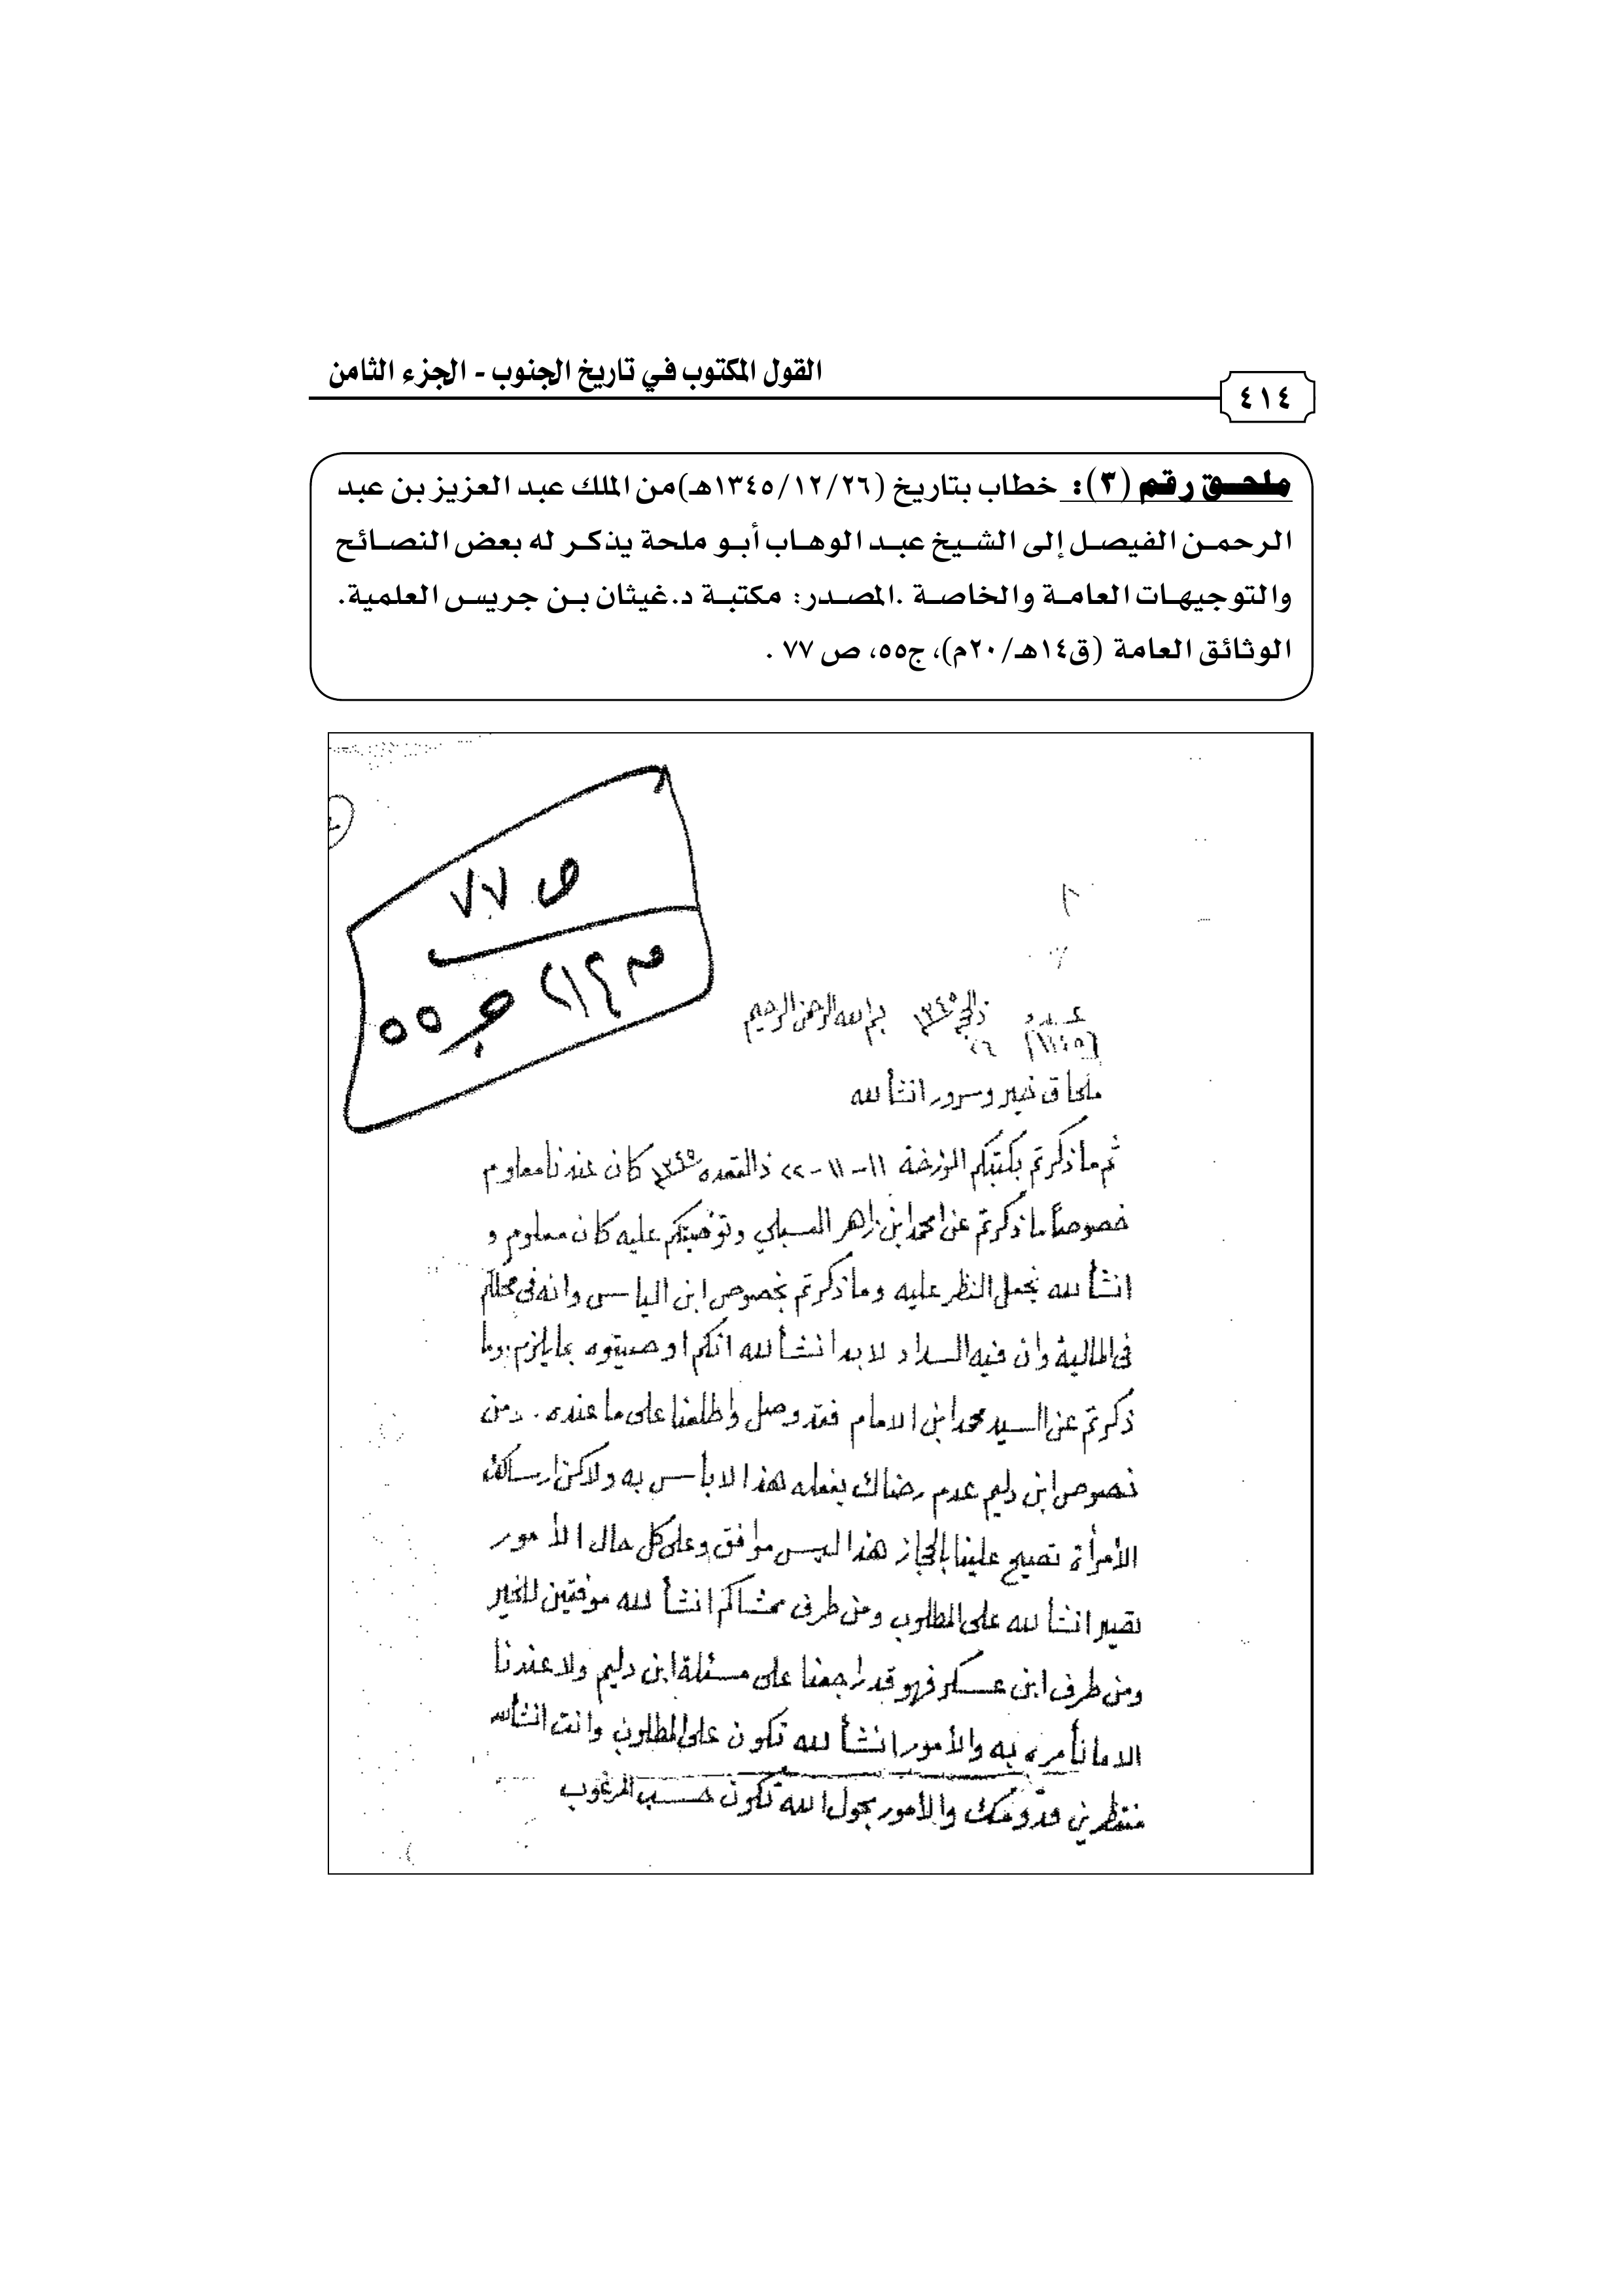 القول المكتوب في تاريخ الجنوب - الجزء الثامن
٤١٤
ملحق رقم (٣): خطاب بتاريخ (١٣٤٥/١٢/٢٦هـ)من الملك عبد العزيز بن عبد
الرحمن الفيصل إلى الشيخ عبد الوهاب أبو ملحة يذكر له بعض النصائح
والتوجيهات العامة والخاصة .المصدر: مكتبة د.غيثان بن جريس العلمية.
الوثائق العامة (ق١٤هـ/٢٠م)، ج٥٥، ص ٧٧ .
ص ٧٧
ج ٥٥
عدد ذالحجه ١٣٤٥ بسم الله الرحمن الرحيم
٢٦
ملحاق خير وسرور انشأ لله
ثم ماذكرتم بكتبكم المؤرخة ١١-١١-٢٢ ذالقعده ١٣٤٥ كان عندنا معلوم
خصوصاً ما ذكرتم عن محمد ابن زاهر وتوصيتكم عليه كان معلوم و
انشأ لله نجعل النظر عليه وما ذكرتم بخصوص ابن الياس وانه في محلكم
في المالية وان فيه السداد لابد انشأ لله انكم اوصيتوه بما يلزم وما
ذكرتم عن السيد محمد ابن الامام فقد وصل واطلعنا على ما عنده. ومن
خصوص ابن دليم عدم رضاك بفعله هذا لابأس به ولاكن ارسالك
الأمرأة تصيح علينا بالحجاز هذا ليس موافق وعلى كل حال الأمور
تصير انشأ لله على المطلوب ومن طرف ممشاكم انشأ لله موفقين للخير
ومن طرف ابن عسكر فهو قد راجعنا على مسئلة ابن دليم ولا عندنا
الا ما نأمره به والأمور انشأ لله تكون على المطلوب وانت انشأ لله
منتظرين قدومك والأمور بحول الله تكون حسب المرغوب